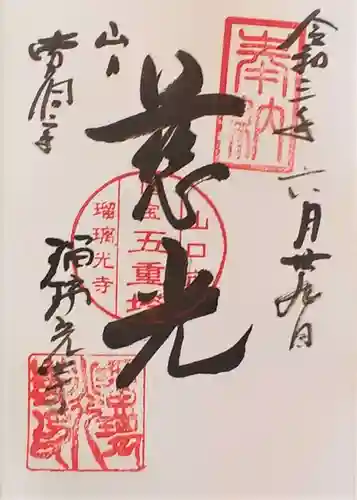 奉納
令和三年
六月廿九日
慈光
山口市
国宝
五重塔
瑠璃光寺
山口
瑠璃光寺